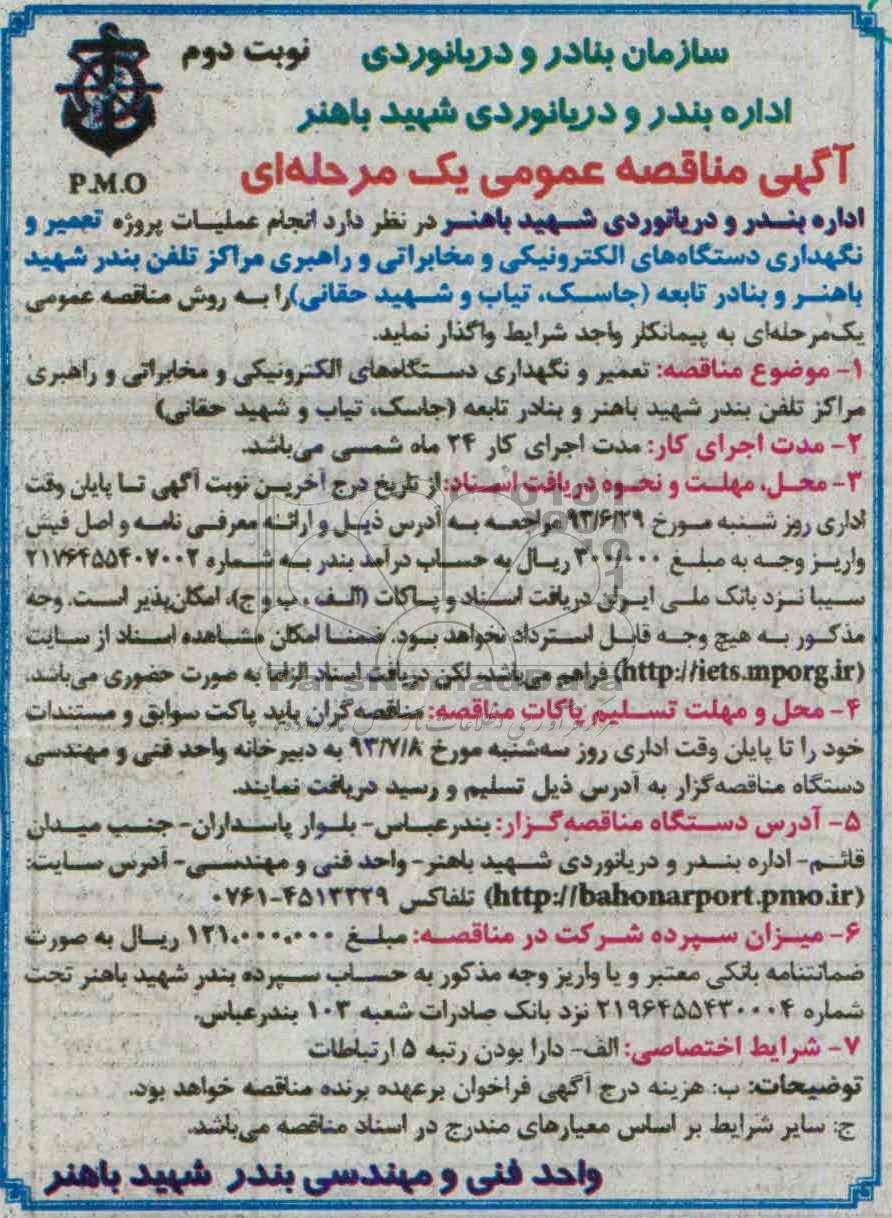 سازمان بنادر و دریانوردی
نوبت دوم
P.M.O
اداره بندر و دریانوردی شهید باهنر
آگهی مناقصه عمومی یک مرحله‌ای
اداره بندر و دریانوردی شهید باهنر در نظر دارد انجام عملیات پروژه تعمیر و
نگهداری دستگاه‌های الکترونیکی و مخابراتی و راهبری مراکز تلفن بندر شهید
باهنر و بنادر تابعه (جاسک، تیاب و شهید حقانی) را به روش مناقصه عمومی
یک‌مرحله‌ای به پیمانکار واجد شرایط واگذار نماید.
۱- موضوع مناقصه: تعمیر و نگهداری دستگاههای الکترونیکی و مخابراتی و راهبری
مراکز تلفن بندر شهید باهنر و بنادر تابعه (جاسک، تیاب و شهید حقانی)
۲- مدت اجرای کار: مدت اجرای کار ۲۴ ماه شمسی می‌باشد.
۳- محل، مهلت و نحوه دریافت اسناد: از تاریخ درج آخرین نوبت آگهی تا پایان وقت
اداری روز شنبه مورخ ۹۳/۶/۲۹ مراجعه به آدرس ذیل و ارائه معرفی نامه و اصل فیش
واریز وجه به مبلغ ۳۰۰/۰۰۰ ریال به حساب درآمد بندر به شماره ۲۱۷۶۴۵۵۴۰۷۰۰۲
سیبا نزد بانک ملی ایران دریافت اسناد و پاکات (الف، ب و ج)، امکان‌پذیر است. وجه
مذکور به هیچ وجه قابل استرداد نخواهد بود. ضمنا امکان مشاهده اسناد از سایت
(http://iets.mporg.ir) فراهم می‌باشد، لکن دریافت اسناد الزاما به صورت حضوری می‌باشد.
ParsNamadData
۴- محل و مهلت تسلیم پاکات مناقصه: مناقصه‌گران باید پاکت سوابق و مستندات
خود را تا پایان وقت اداری روز سه‌شنبه مورخ ۹۳/۷/۸ به دبیرخانه واحد فنی و مهندسی
دستگاه مناقصه‌گزار به آدرس ذیل تسلیم و رسید دریافت نمایند.
۵- آدرس دستگاه مناقصه‌گزار: بندرعباس- بلوار پاسداران- جنب میدان
قائم- اداره بندر و دریانوردی شهید باهنر- واحد فنی و مهندسی- آدرس سایت:
(http://bahonarport.pmo.ir) تلفاکس ۴۵۱۳۳۲۹-۰۷۶۱
۶- میزان سپرده شرکت در مناقصه: مبلغ ۱۲۱,۰۰۰,۰۰۰ ریال به صورت
ضمانتنامه بانکی معتبر و یا واریز وجه مذکور به حساب سپرده بندر شهید باهنر تحت
شماره ۲۱۹۶۴۵۵۴۳۰۰۰۴ نزد بانک صادرات شعبه ۱۰۳ بندرعباس.
۷- شرایط اختصاصی: الف- دارا بودن رتبه ۵ ارتباطات
توضیحات: ب: هزینه درج آگهی فراخوان برعهده برنده مناقصه خواهد بود.
ج: سایر شرایط بر اساس معیارهای مندرج در اسناد مناقصه می‌باشد.
واحد فنی و مهندسی بندر شهید باهنر